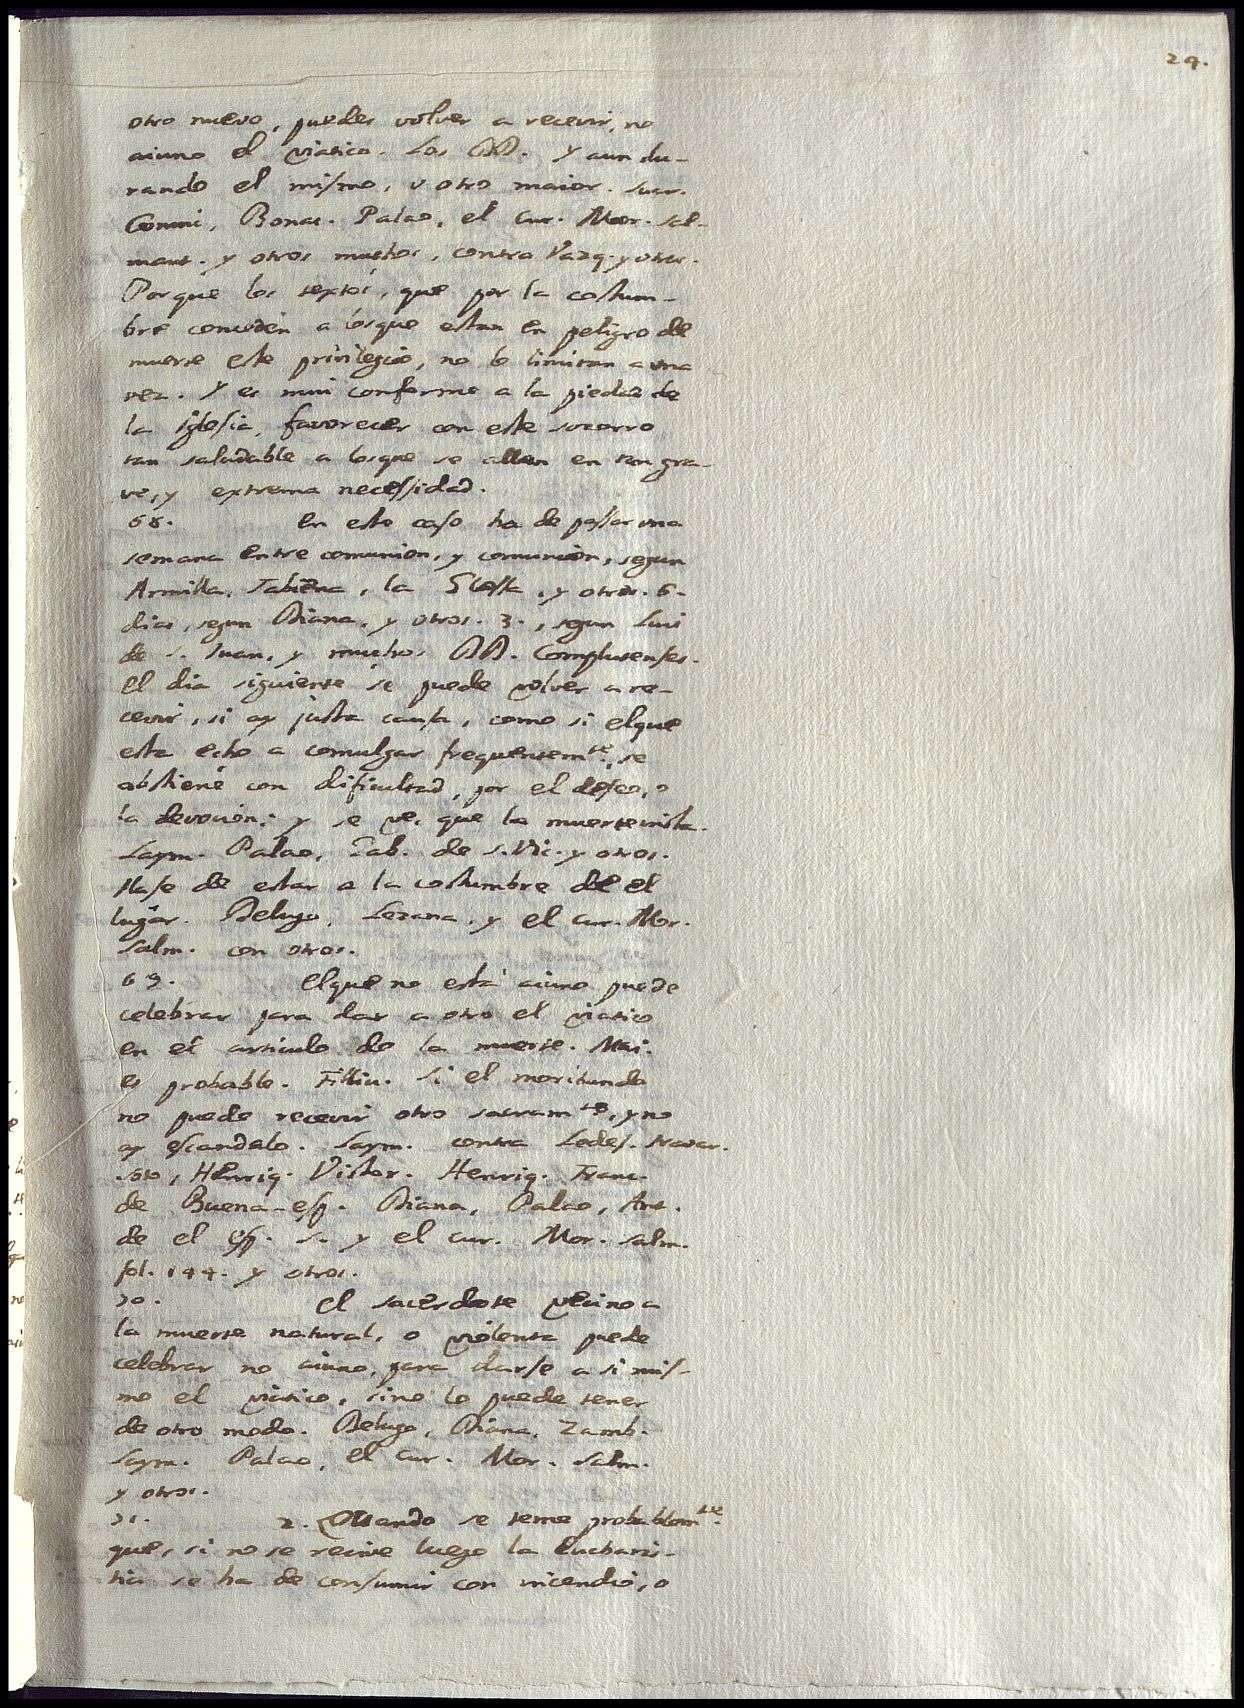 24.
otro nuevo, puedes volver a recevir, no
aiuno el viatico. Los DD. y aun du-
rando el mismo, v otro maior. Suar.
Conini, Bonac. Palao, el Cur. Mor. Sal-
mant. y otros muchos, contra Vazq. y otros.
Porque los textos, que por la costum-
bre conceden a los que estan en peligro de
muerte este privilegio, no lo limitan a una
vez. Y es mui conforme a la piedad de
la Iglesia, favorecer con este socorro
tan saludable a los que se allan en tan gra-
ve, y extrema necessidad.
68. En este caso ha de passar una
semana entre comunion, y comunion, segun
Armilla, Tabiena, la y otros. 6.
dias, segun Diana, y otros. 3., segun Luis
de S. Juan, y muchos DD. Complutenses.
El dia siguiente se puede volver a re-
cevir, si ay justa causa, como si el que
esta echo a comulgar frequentemte, se
abstiene con dificultad, por el deseo, o
la devocion; y se ve, que la muerte insta.
Laym. Palao, Fab. de S. Vic. y otros.
Hase de estar a la costumbre de el
lugar. Delugo, Lezana, y el cur. Mor.
Salm. con otros.
69. El que no està aiuno puede
celebrar para dar a otro el viatico
en el articulo de la muerte. Mai.
es probable. Filliu. Si el moribundo
no puede recevir otro sacramto, y no
ay escandalo. Laym. contra Ledes. Navar.
Soto, Henriq. Victor. Henriq. Franc.
de Buena-esp. Diana, Palao, Ant.
de el Esp. S. y el cur. Mor. Salm.
fol. 144. y otros.
70. El sacerdote vecino a
la muerte natural, o violenta puede
celebrar no aiuno, para darse a si mis-
mo el viatico, sino lo puede tener
de otro modo. Delugo, Diana, Zamb.
Laym. Palao, el Cur. Mor. Salm.
y otros.
71. 2. Quando se teme probablemte.
que, si no se recive luego la Eucharis-
tia se ha de consumir con incendio, o